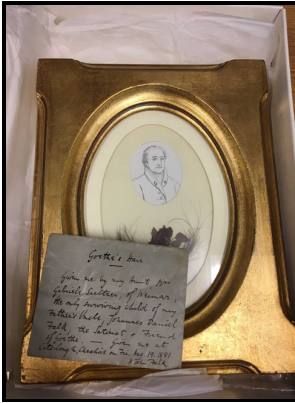 Goethe's Hair
Given me by my Aunt, Mrs
Gabriele Sulzer, of Weimar,
the only surviving child of my
Father's Uncle, Johannes Daniel
Falk, the Satirist & Friend
of Goethe. — Given me at
on Fri. Aug. 19. 1881